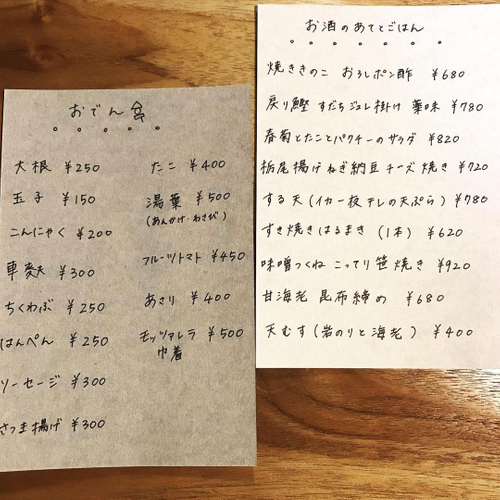 おでん含
大根 ¥250
玉子 ¥150
こんにゃく ¥200
車麩 ¥300
ちくわぶ ¥250
はんぺん ¥250
ソーセージ ¥300
さつま揚げ ¥300
たこ ¥400
湯葉 ¥500
(あんかけ・わさび)
フルーツトマト ¥450
あさり ¥400
モッツァレラ ¥500
巾着
お酒のあてとごはん
焼ききのこ おろしポン酢 ¥680
戻り鰹 すだちジュレ掛け 薬味 ¥780
春菊とたことパクチーのサラダ ¥820
栃尾揚げねぎ納豆チーズ焼き ¥720
する天(イカ一夜干しの天ぷら) ¥780
すき焼きはるまき (1本) ¥620
味噌つくね こってり笹焼き ¥920
甘海老 昆布締め ¥680
天むす(岩のりと海老) ¥400